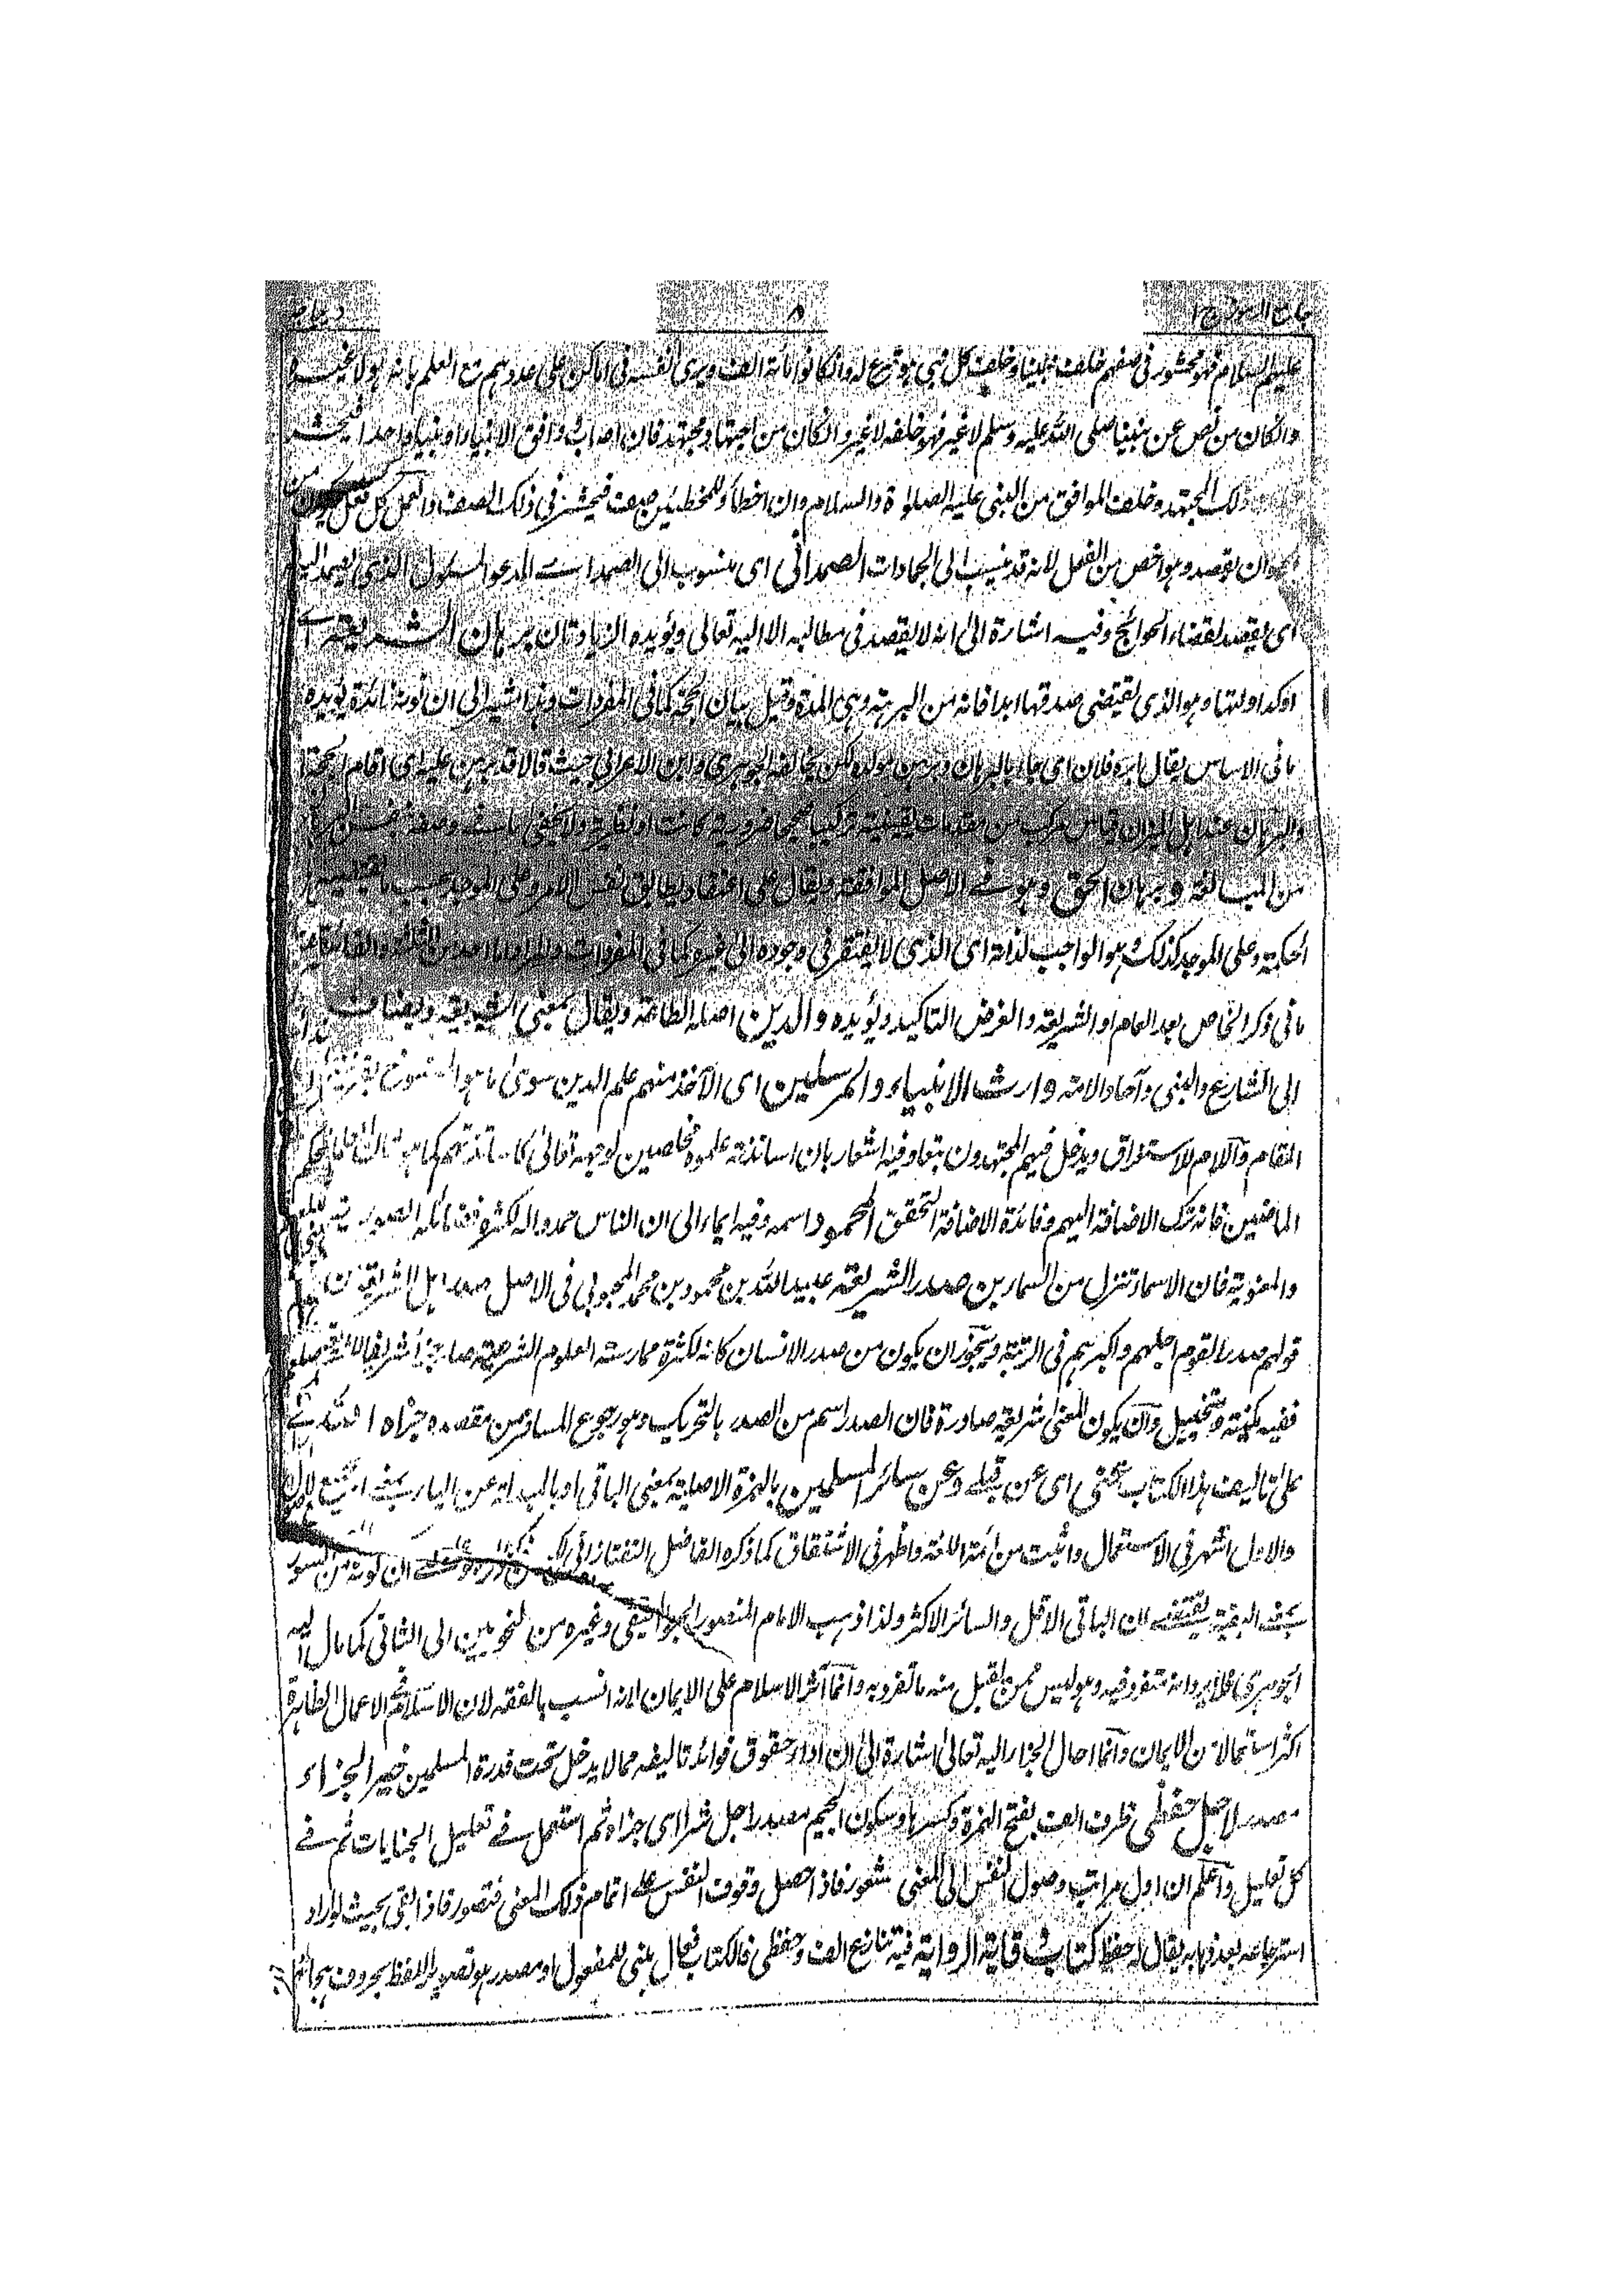 جامع الرموز ج ١
٨
عليهم السلام فهو محشور فى صفهم خلف نبينا وخلف كل نبى هو تبع له وان كانوا مائة الف ويرى نفسه فى اماكن على عددهم مع العلم بانه هو لا غيره
وان كان من نص عن نبينا صلى الله عليه وسلم لا غير فهو خلفه لا غير وان كان من اجتهاد مجتهد فان اصاب وافق الانبياء او نبيا واحدا فيحشر
ذلك المجتهد وخلف الموافق من النبى عليه الصلوة والسلام وان اخطأ وللمخطئين صف فيحشر فى ذلك الصف والعمل كل فعل يكون من
الحيوان بقصد وهو اخص من الفعل لانه قد ينسب الى الجمادات الصمدانى اى منسوب الى الصمد اى المدعو المسئول الذى يصمد اليه
اى يقصد لقضاء الحوائج وفيه اشارة الى انه لا يقصد فى مطالبه الا اليه تعالى ويؤيده الزيادتان برهان الشريعة اى
اوكد ادلتها وهو الذى يقتضى صدقها ابدا فانه من البرهة وهى المدة وقيل بيان الحجة كما فى المفردات وهذا اشبه الى ان نونه زائدة يؤيده
ما فى الاساس يقال ابره فلان اى جاء بالبرهان وبرهن مولد لكن يخالفه الجوهرى وابن الاعرابى حيث قالا قد برهن عليه اى اقام الحجة
والبرهان عند اهل الميزان قياس مركب من مقدمات يقينية تركيبا صحيحا ضرورية كانت او نظرية ولا يخفى ما فى وصفه
من المبالغة وبرهان الحق وهو فى الاصل الموافقة ويقال على اعتقاد يطابق نفس الامر وعلى الموجد بحسب ما يقتضيه
الحكمة وعلى الموجد كذلك وهو الواجب لذاته اى الذى لا يفتقر فى وجوده الى غيره كما فى المفردات والمراد اما احد من الثلثة والفائدة
ما فى ذكر الخاص بعد العام او الشريعة والغرض التاكيد ويؤيده والدين اصله الطاعة ويقال بمعنى الشريعة ويضاف
الى الشارع والنبى وآحاد الامة وارث الانبياء والمرسلين اى الآخذ منهم علم الدين سوى ما هو الممنوع بقرينة
المقام واللام للاستغراق ويدخل فيهم المجتهدون تبعا وفيه اشعار بان اساتذته علموه مخلصين لوجهه تعالى كاساتذتهم كما هو
الماضيين فانه ترك الاضافة اليهم وفائدة الاضافة التحقق المحمود اسمه وفيه ايماء الى ان الناس حمدوا له لكثرة
والمعنوية فان الاسماء تنزل من السماء ابن صدر الشريعة عبيد الله بن محمود بن محمد المحبوبى فى الاصل صدر اهل الشريعة من
قولهم صدر القوم اجلهم واكبرهم فى الرتبة ويجوز ان يكون من صدر الانسان كانه لكثرة ممارسته العلوم الشرعية صار
ففيه مكنية وتخييل وان يكون المعنى شريعة صادرة فان الصدر اسم من الصدر بالتحريك وهو رجوع المسافر من مقصده جزاه الله
على تاليف هذا الكتاب عنى اى عن قبلى وعن سائر المسلمين بالهمزة الاصلية بمعنى الباقى او بالمبدلة عن الياء بمعنى الجميع
والاول اشهر فى الاستعمال واثبت من ائمة اللغة واظهر فى الاشتقاق كما ذكره الفاضل التفتازانى لكن ان كونه من السور
بمعنى البقية يقتضى ان الباقى الاقل والسائر الاكثر ولذا ذهب الامام المنصور الجواليقى وغيره من النحويين الى الثانى كما مال اليه
الجوهرى فلا يرد انه متفرد فيه وهو ليس ممن يقبل منه ما تفرد به وانما آثر الاسلام على الايمان لانه انسب بالفقه لان الاسلام الاعمال الظاهرة
اكثر استعمالا من الايمان وانما احال الجزاء اليه تعالى اشارة الى ان اداء حقوق فوائد تاليفه مما لا يدخل تحت قدرة المسلمين خير الجزاء
مصدر لاجل حفظى ظرف الف بفتح الهمزة وكسرها وسكون الجيم مصدر اجل شرا اى جناه ثم استعمل فى تعليل الجنايات ثم فى
كل تعليل واعلم ان اول مراتب وصول النفس الى المعنى شعور فاذا حصل وقوف النفس على اتمام ذلك المعنى فتصور فاذا بقى بحيث لو اراد
استرجاعه بعد ذهابه يقال له حفظ كتاب وقاية الرواية فيه تنازع الف وحفظى فالكتاب فعال بنى للمفعول او مصدر هو تصوير اللفظ بحروف هجائه